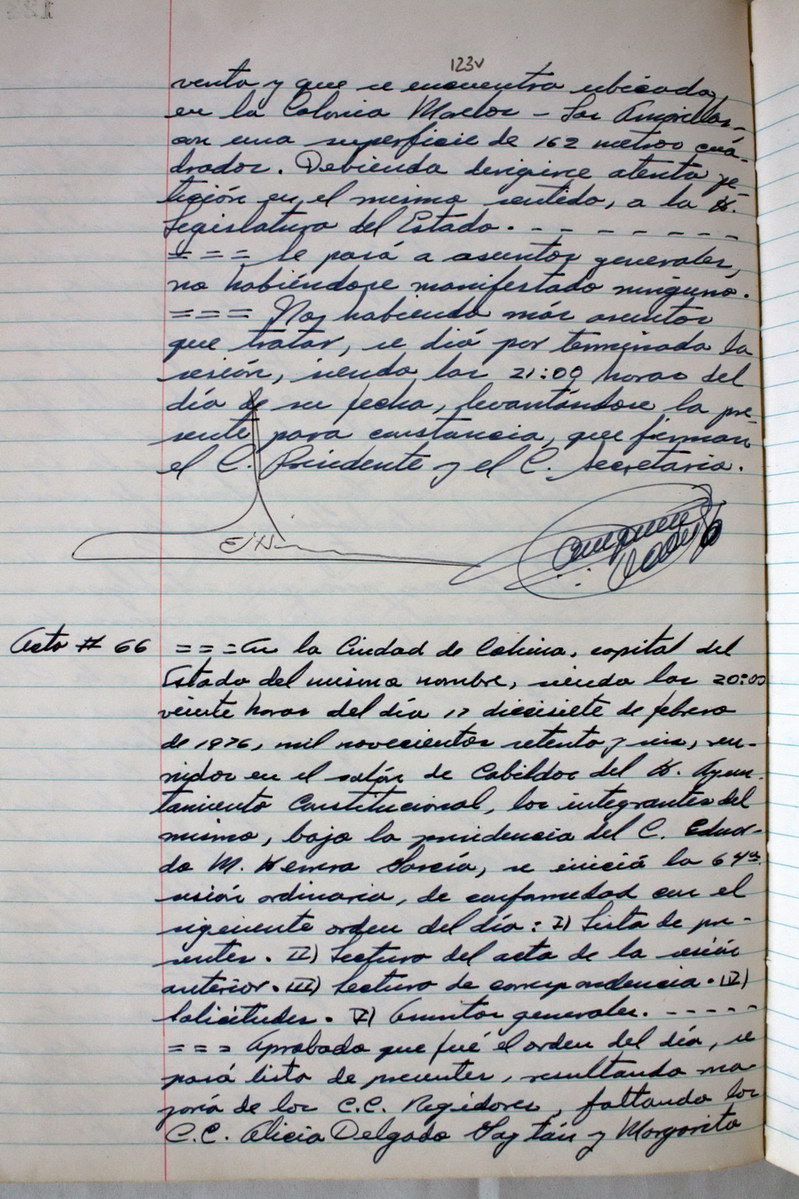 123v
venta y que se encuentra ubicada,
en la Colonia Morelos - Las Amarillas-
con una superficie de 162 metros cua-
drados. Debiendo dirigirse atenta pe-
tición en el mismo sentido, a la H.
Legislatura del Estado. - - - - - - - -
= = = Se pasó a asuntos generales,
no habiéndose manifestado ninguno.
= = = No habiendo más asuntos
que tratar, se dió por terminada la
sesión, siendo las 21:00 horas del
día de su fecha, levantándose la pre-
sente para constancia, que firman
el C. Presidente y el C. Secretario.
Acta # 66
= = = En la Ciudad de Colima, capital del
Estado del mismo nombre, siendo las 20:00
veinte horas del día 17 diecisiete de febrero
de 1976, mil novecientos setenta y seis, reu-
nidos en el salón de Cabildos del H. Ayun-
tamiento Constitucional, los integrantes del
mismo, bajo la presidencia del C. Eduar-
do M. Herrera García, se inició la 64ta
sesión ordinaria, de conformidad con el
siguiente orden del día: I) Lista de pre-
sentes. II) Lectura del acta de la sesión
anterior. III) Lectura de correspondencia. IV)
Solicitudes. V) Asuntos generales. - - - - -
= = = Aprobado que fué el orden del día, se
pasó lista de presentes, resultando ma-
yoría de los C.C. Regidores, faltando los
C.C. Alicia Delgado Gaytán y Margarita